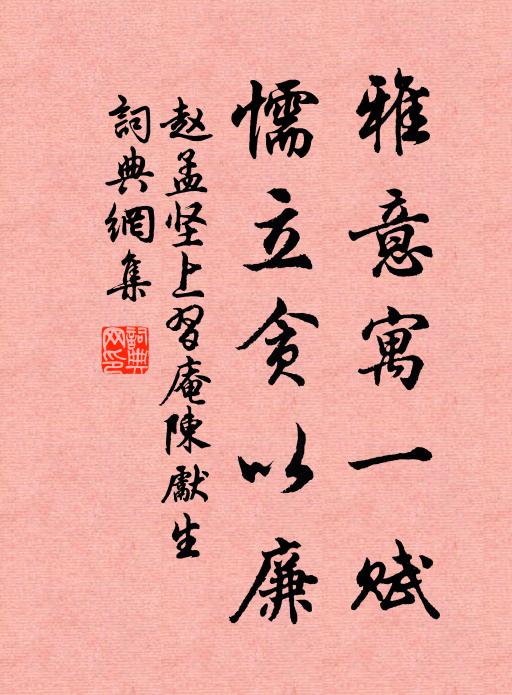 雅意寓一赋
懦立贪以廉
赵孟坚上習庵陳獻生
詞典網集
詞典网印